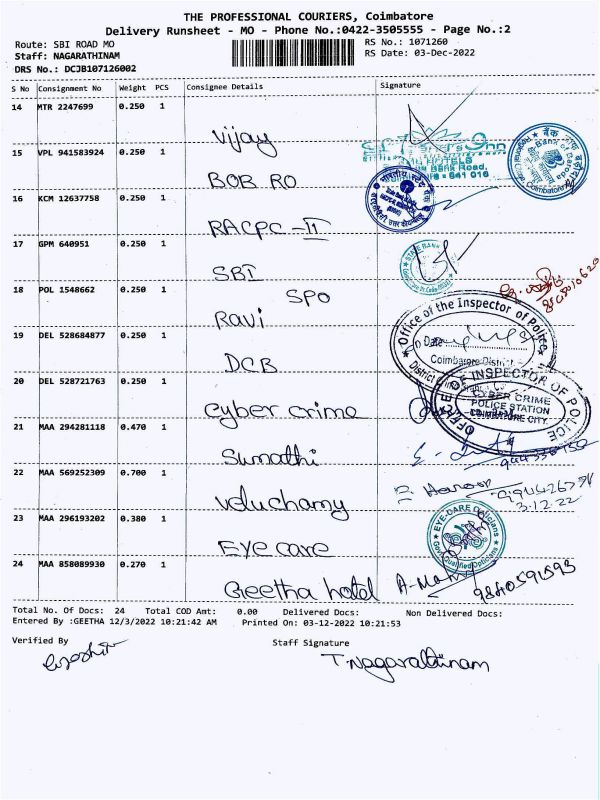 THE PROFESSIONAL COURIERS, Coimbatore
Delivery Runsheet - MO - Phone No.:0422-3505555 - Page No.:2
Route: SBI ROAD MO
RS No.: 1071260
Staff: NAGARATHINAM
RS Date: 03-Dec-2022
DRS No.: DCJB107126002
S No Consignment No Weight PCS Consignee Details Signature
14 MTR 2247699 0.250 1
Vijay
15 VPL 941583924 0.250 1
BOB RO
16 KCM 12637758 0.250 1
RACPC-II
17 GPM 640951 0.250 1
SBI
SPO
18 POL 1548662 0.250 1
Ravi
Office of the Inspector of Police
Date
Coimbatore District
19 DEL 528684877 0.250 1
DCB
20 DEL 528721763 0.250 1
Cyber crime
OFFICE OF INSPECTOR OF POLICE
CYBER CRIME
POLICE STATION
COIMBATORE CITY.
21 MAA 294281118 0.470 1
Sumathi
22 MAA 569252309 0.700 1
Veluchamy
3.12.22
23 MAA 296193202 0.380 1
Eye care
EYE-CARE Opticians
Gov. Qualified Opticians
24 MAA 858089930 0.270 1
Geetha hotel
9840591593
Total No. Of Docs: 24 Total COD Amt: 0.00 Delivered Docs: Non Delivered Docs:
Entered By :GEETHA 12/3/2022 10:21:42 AM Printed On: 03-12-2022 10:21:53
Verified By
Staff Signature
T.Nagarathinam